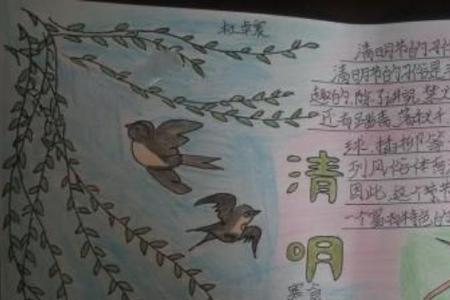 杜卓寰
清明节的习俗
清明节的习俗是丰
趣的,除了讲究禁火
还有踏青、荡秋千
球、插柳等
列风俗体育
因此,这个节
一个富有特色的
清明